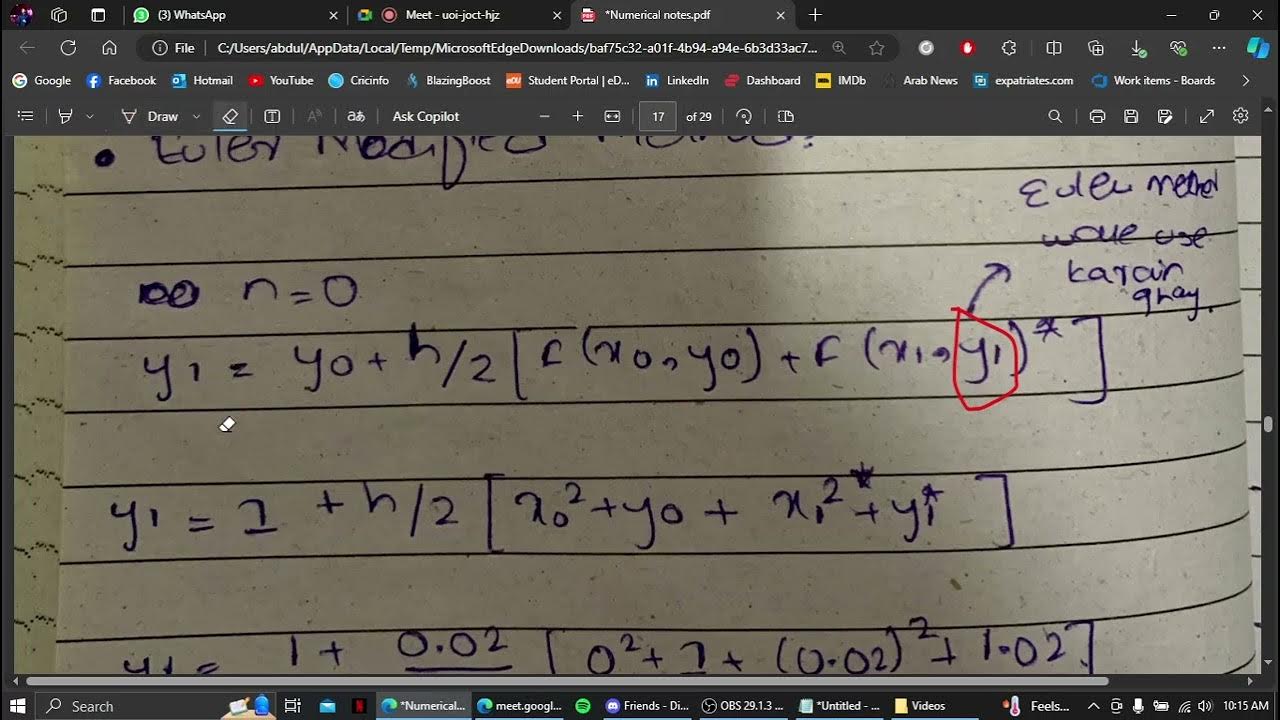 (3) WhatsApp
Meet - uoi-joct-hjz
*Numerical notes.pdf
File
C:/Users/abdul/AppData/Local/Temp/MicrosoftEdgeDownloads/baf75c32-a01f-4b94-a94e-6b3d33ac7...
Google Facebook Hotmail YouTube Cricinfo BlazingBoost Student Portal | eD... LinkedIn Dashboard IMDb Arab News expatriates.com Work items - Boards
Draw aあ Ask Copilot 17 of 29
• Euler Modified Method:
Euler method
wale use
karain
ghay.
n = 0
y1 = y0 + h/2 [f(x0, y0) + f(x1, y1)*]
y1 = 1 + h/2 [x0² + y0 + x1²* + y1*]
y1 = 1 + 0.02 [0² + 1 + (0.02)² + 1.02]
Search
*Numerical...
meet.googl...
Friends - Di...
OBS 29.1.3 ...
*Untitled - ...
Videos
Feels...
10:15 AM